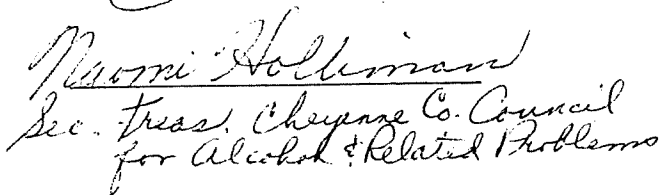 Naomi Holliman
Sec. Treas. Cheyenne Co. Council
for Alcohol & Related Problems